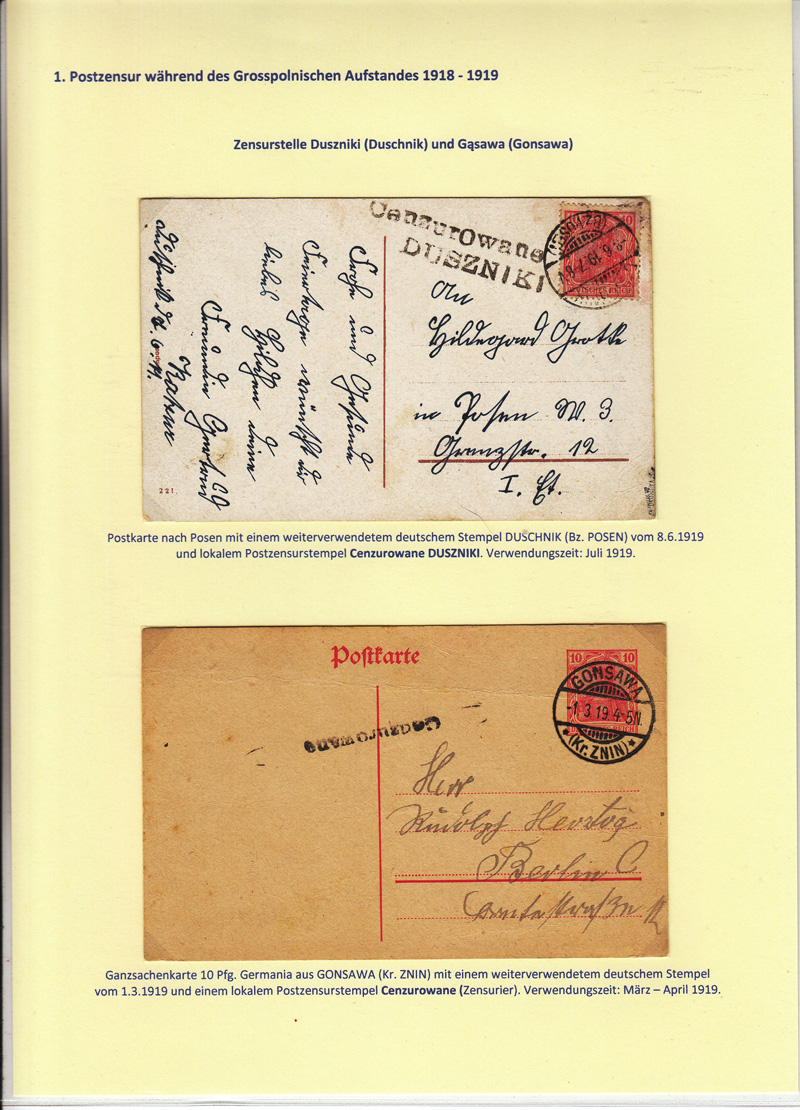 1. Postzensur während des Grosspolnischen Aufstandes 1918 - 1919
Zensurstelle Duszniki (Duschnik) und Gąsawa (Gonsawa)
Cenzurowane
DUSZNIKI
10
An
Hildegard Grotke
in Posen W. 3.
Grenzstr. 12
I. Et.
Frohe und Gesunde
Feiertage wünscht dir
liebes Hildchen deine
Freundin Gertrud
221.
Postkarte nach Posen mit einem weiterverwendetem deutschem Stempel DUSCHNIK (Bz. POSEN) vom 8.6.1919
und lokalem Postzensurstempel Cenzurowane DUSZNIKI. Verwendungszeit: Juli 1919.
Postkarte
10 10
GONSAWA
-1.3.19.4-5N.
* (Kr. ZNIN) *
Cenzurowane
Herr
Rudolph Hertzog
Berlin C
Breitestraße
Ganzsachenkarte 10 Pfg. Germania aus GONSAWA (Kr. ZNIN) mit einem weiterverwendetem deutschem Stempel
vom 1.3.1919 und einem lokalem Postzensurstempel Cenzurowane (Zensurier). Verwendungszeit: März – April 1919.